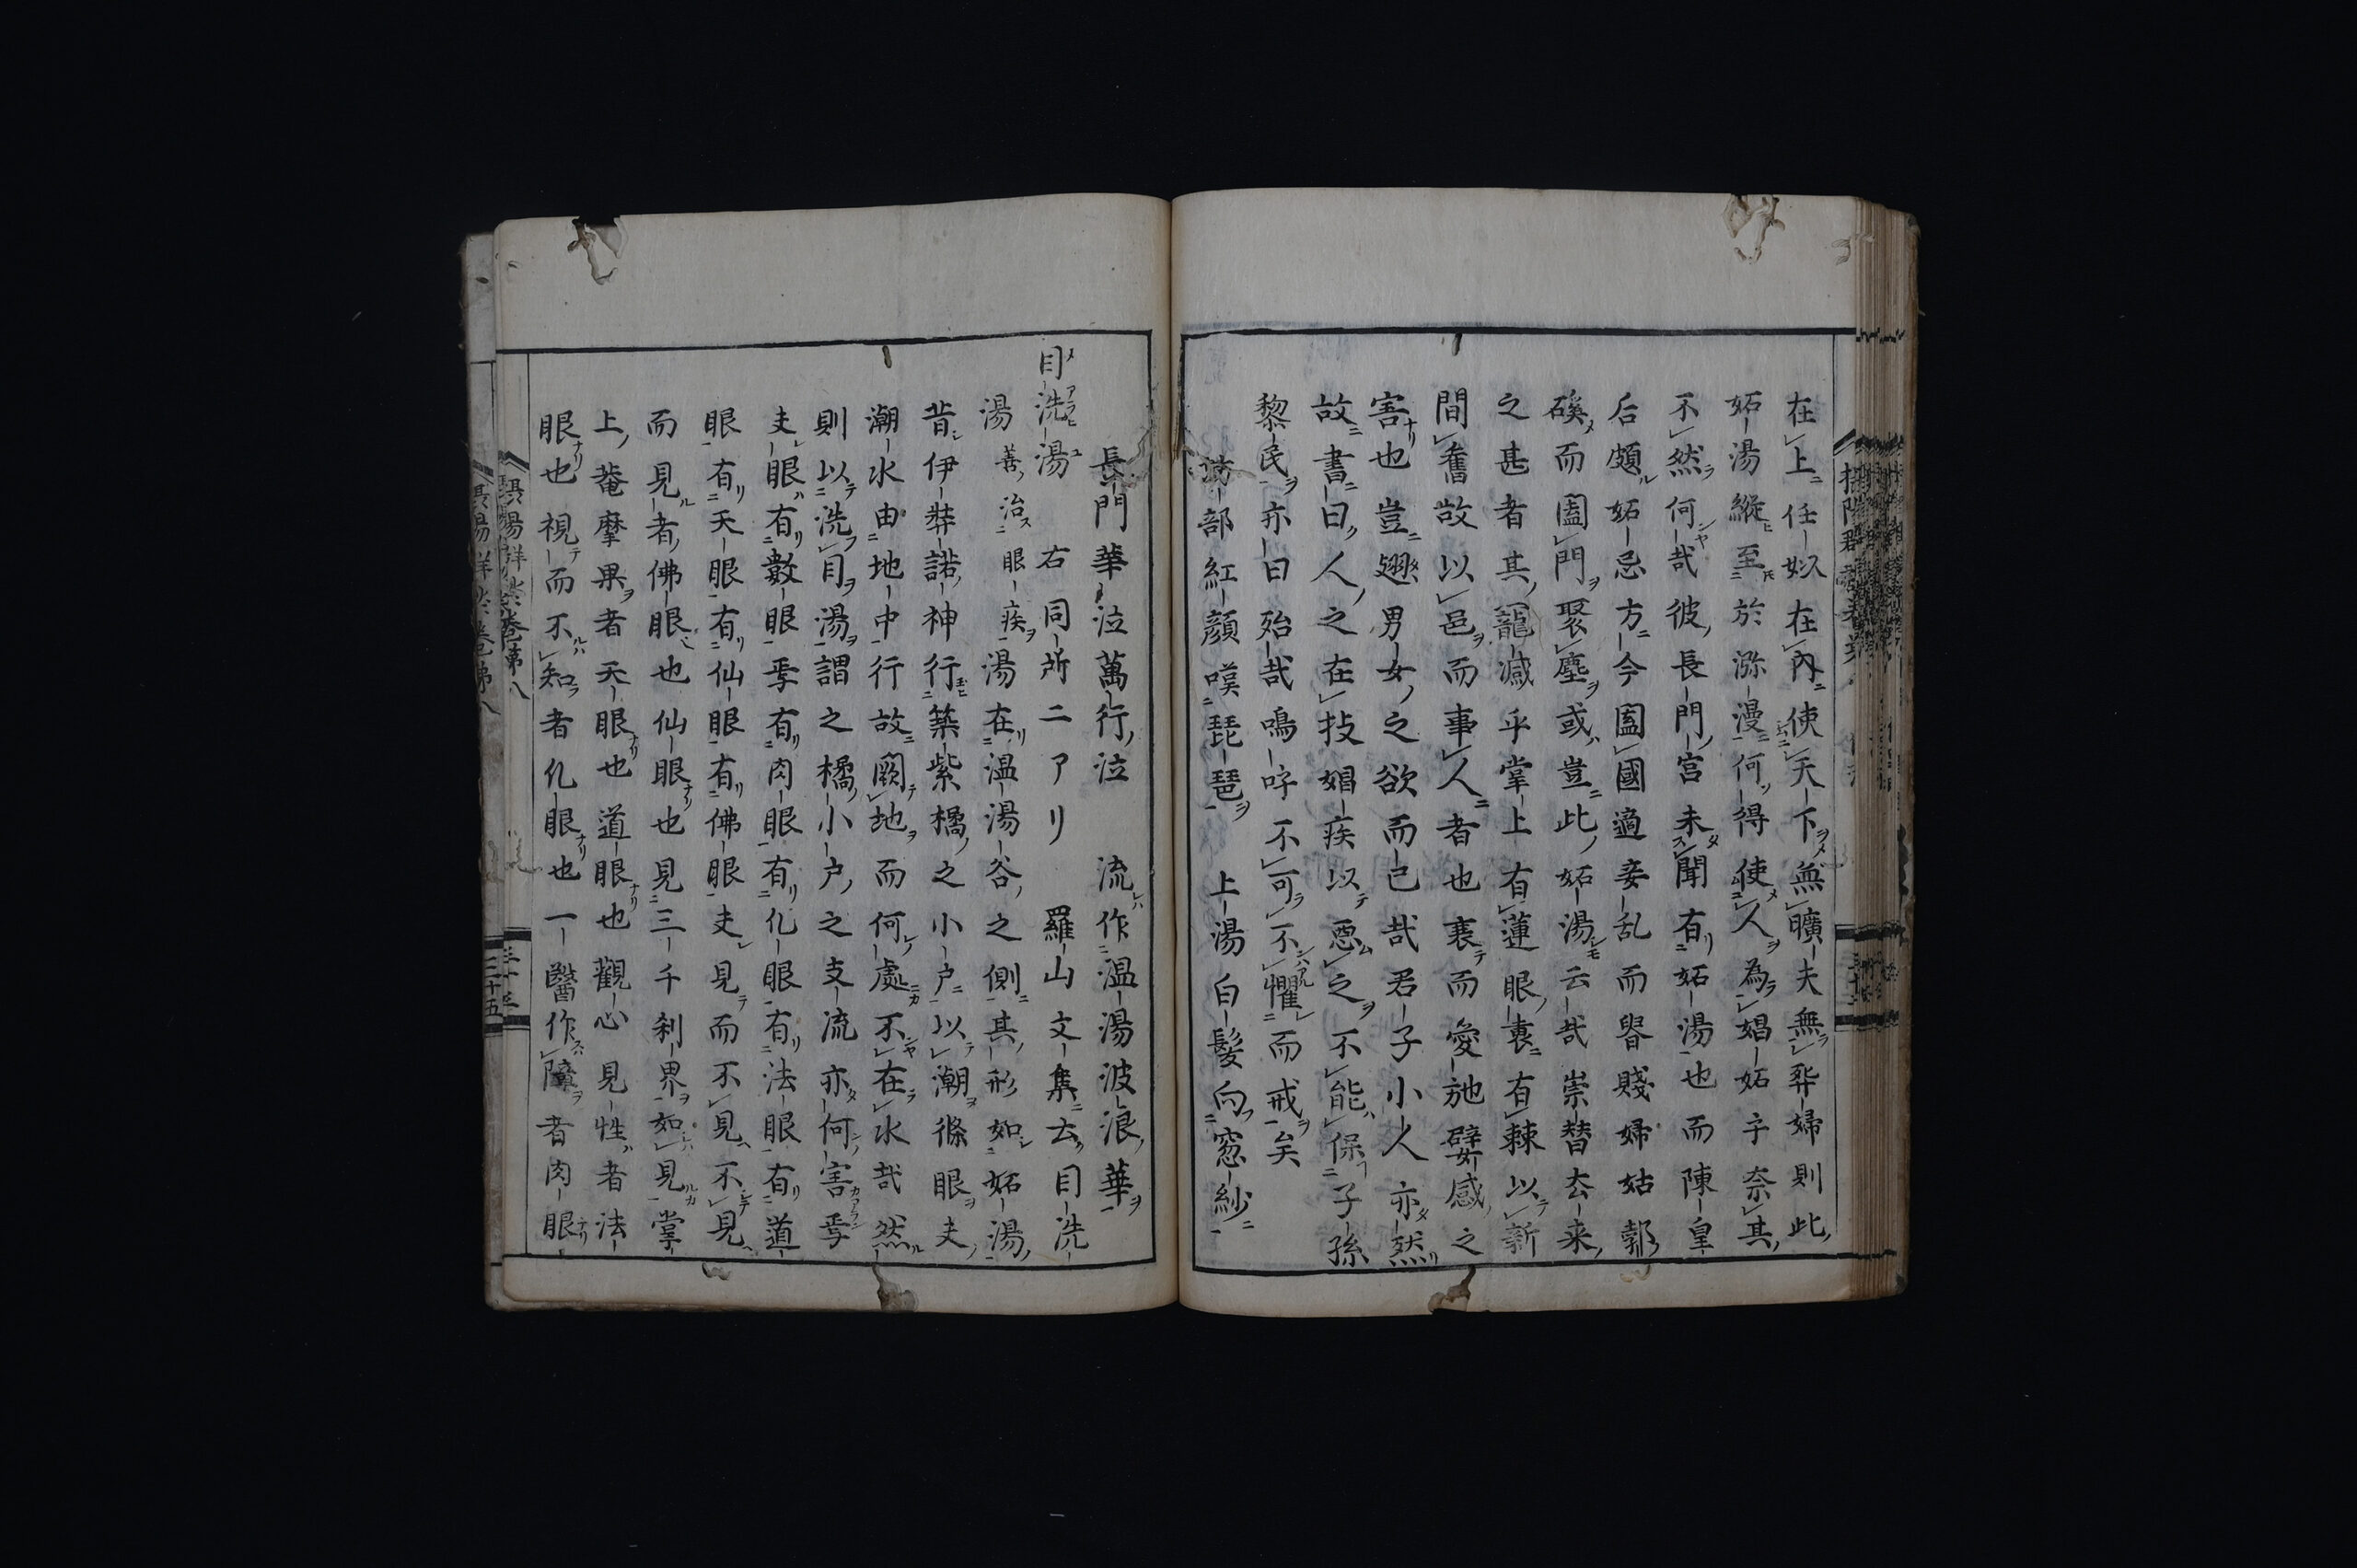 在上任姒在內使天下無曠夫無葬婦則此
妬湯縱至於㳽漫何得使人為娼妬乎奈其
不然何哉彼長門宮未聞有妬湯也而陳皇
后頗妬忌方今闔國適妾乱而眷賤婦姑
磎而闔門聚塵或豈此妬湯云哉崇替去来
之甚者其寵減乎掌上有蓮眼裏有棘以新
間舊故以邑而事人者也衰而愛弛嬖感之
害也豈翅男女之欲而已哉君子小人亦然
故書曰人之在技娼疾以惡之不能保子孫
黎民亦曰殆哉嗚呼不可不懼而戒矣
部紅顔嘆琵琶 上湯白髪向窓紗
長門華泣萬行泣 流作温湯波浪華
目洗湯 右同所ニアリ 羅山文集云目洗
湯善治眼疾湯在温湯谷之側其形如妬湯
昔伊弉諾神行築紫橘之小戸以潮滌眼夫
潮水由地中行故闕地而何處不在水哉然
則以洗目湯謂之橘小戸之支流亦何害焉
夫眼有數眼焉有肉眼有化眼有法眼有道
眼有天眼有仙眼有佛眼夫見而不見不見
而見者佛眼也仙眼也見三千刹界如見掌
上菴摩果者天眼也道眼也觀心見性者法
眼也視而不知者化眼也一醫作障者肉眼
摂陽群談巻第八
三十五